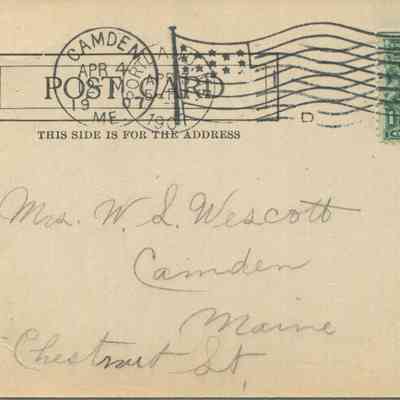 CAMDEN
APR 4
1907
ME.
POST CARD
THIS SIDE IS FOR THE ADDRESS
D
Mrs. W. L. Wescott
Camden
Maine
Chestnut St.